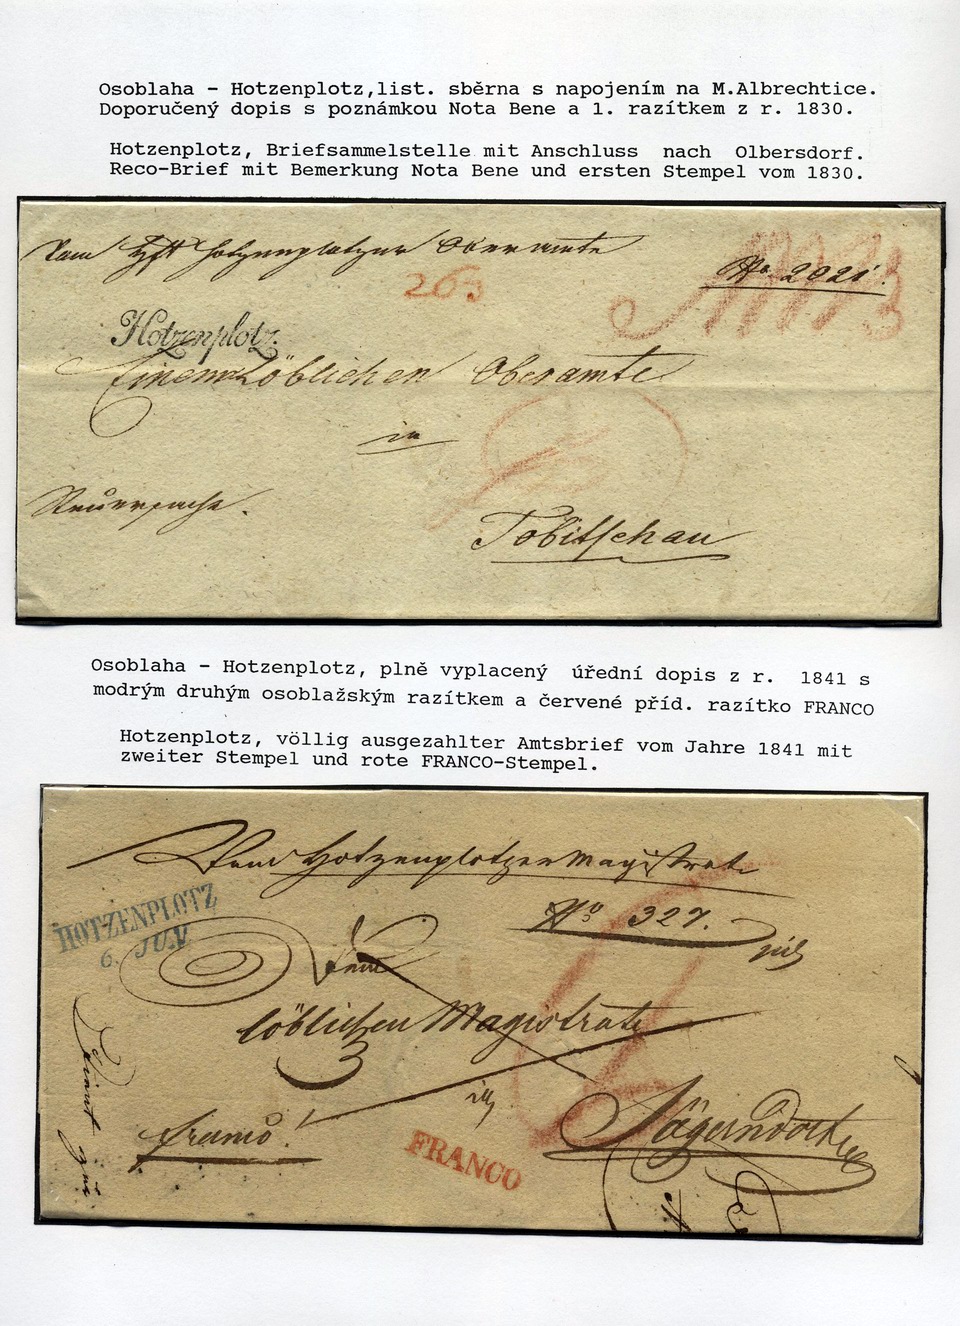 Osoblaha - Hotzenplotz,list. sběrna s napojením na M.Albrechtice.
Doporučený dopis s poznámkou Nota Bene a 1. razítkem z r. 1830.
Hotzenplotz, Briefsammelstelle mit Anschluss nach Olbersdorf.
Reco-Brief mit Bemerkung Nota Bene und ersten Stempel vom 1830.
Hotzenplotzer Oberamte
No. 2021.
263
Hotzenplotz.
Einem Löblichen Oberamte
in
Tobitschau
Osoblaha - Hotzenplotz, plně vyplacený úřední dopis z r. 1841 s
modrým druhým osoblažským razítkem a červené příd. razítko FRANCO
Hotzenplotz, völlig ausgezahlter Amtsbrief vom Jahre 1841 mit
zweiter Stempel und rote FRANCO-Stempel.
Vom Hotzenplotzer Magistrat
No 327.
HOTZENPLOTZ
6. JUN
Dem
löblichen Magistrate
in
franco!
FRANCO
Jägerndorf